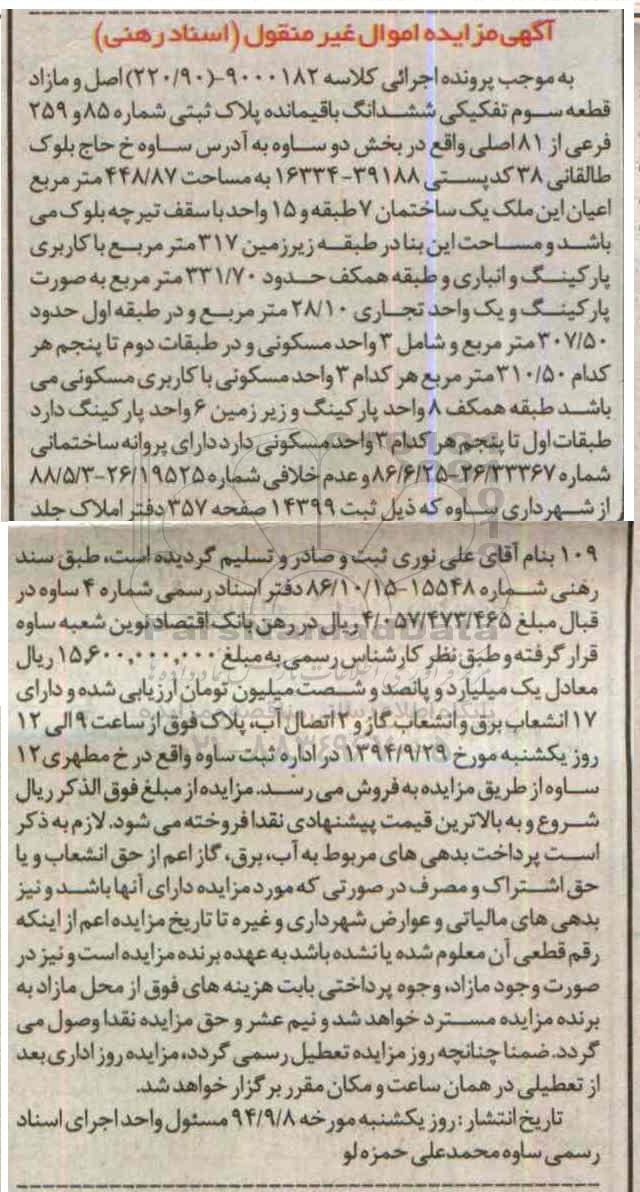 آگهی مزایده اموال غیر منقول (اسناد رهنی)
به موجب پرونده اجرائی کلاسه ۹۰۰۰۱۸۲-(۲۲۰/۹۰) اصل و مازاد
قطعه سوم تفکیکی ششدانگ باقیمانده پلاک ثبتی شماره ۸۵ و ۲۵۹
فرعی از ۸۱ اصلی واقع در بخش دو ساوه به آدرس ساوه خ حاج بلوک
طالقانی ۳۸ کدپستی ۳۹۱۸۸-۱۶۳۳۴ به مساحت ۴۴۸/۸۷ متر مربع
اعیان این ملک یک ساختمان ۷ طبقه و ۱۵ واحد با سقف تیرچه بلوک می
باشد و مساحت این بنا در طبقه زیرزمین ۳۱۷ متر مربع با کاربری
پارکینگ و انباری و طبقه همکف حدود ۳۳۱/۷۰ متر مربع به صورت
پارکینگ و یک واحد تجاری ۲۸/۱۰ متر مربع و در طبقه اول حدود
۳۰۷/۵۰ متر مربع و شامل ۳ واحد مسکونی و در طبقات دوم تا پنجم هر
کدام ۳۱۰/۵۰ متر مربع هر کدام ۳ واحد مسکونی با کاربری مسکونی می
باشد طبقه همکف ۸ واحد پارکینگ و زیر زمین ۶ واحد پارکینگ دارد
طبقات اول تا پنجم هر کدام ۳ واحد مسکونی دارد دارای پروانه ساختمانی
شماره ۲۶/۳۳۳۶۷-۸۶/۶/۲۵ و عدم خلافی شماره ۲۶/۱۹۵۲۵-۸۸/۵/۳
از شهرداری ساوه که ذیل ثبت ۱۴۳۹۹ صفحه ۳۵۷ دفتر املاک جلد
۱۰۹ بنام آقای علی نوری ثبت و صادر و تسلیم گردیده است، طبق سند
رهنی شماره ۱۵۵۴۸-۸۶/۱۰/۱۵ دفتر اسناد رسمی شماره ۴ ساوه در
قبال مبلغ ۴/۰۵۷/۴۷۳/۴۶۵ ریال در رهن بانک اقتصاد نوین شعبه ساوه
قرار گرفته و طبق نظر کارشناس رسمی به مبلغ ۱۵,۶۰۰,۰۰۰,۰۰۰ ریال
معادل یک میلیارد و پانصد و شصت میلیون تومان ارزیابی شده و دارای
۱۷ انشعاب برق و انشعاب گاز و ۲ اتصال آب، پلاک فوق از ساعت ۹ الی ۱۲
روز یکشنبه مورخ ۱۳۹۴/۹/۲۹ در اداره ثبت ساوه واقع در خ مطهری ۱۲
ساوه از طریق مزایده به فروش می رسد. مزایده از مبلغ فوق الذکر ریال
شروع و به بالاترین قیمت پیشنهادی نقدا فروخته می شود. لازم به ذکر
است پرداخت بدهی های مربوط به آب، برق، گاز اعم از حق انشعاب و یا
حق اشتراک و مصرف در صورتی که مورد مزایده دارای آنها باشد و نیز
بدهی های مالیاتی و عوارض شهرداری و غیره تا تاریخ مزایده اعم از اینکه
رقم قطعی آن معلوم شده یا نشده باشد به عهده برنده مزایده است و نیز در
صورت وجود مازاد، وجوه پرداختی بابت هزینه های فوق از محل مازاد به
برنده مزایده مسترد خواهد شد و نیم عشر و حق مزایده نقدا وصول می
گردد. ضمنا چنانچه روز مزایده تعطیل رسمی گردد، مزایده روز اداری بعد
از تعطیلی در همان ساعت و مکان مقرر برگزار خواهد شد.
تاریخ انتشار: روز یکشنبه مورخه ۹۴/۹/۸ مسئول واحد اجرای اسناد
رسمی ساوه محمدعلی حمزه لو